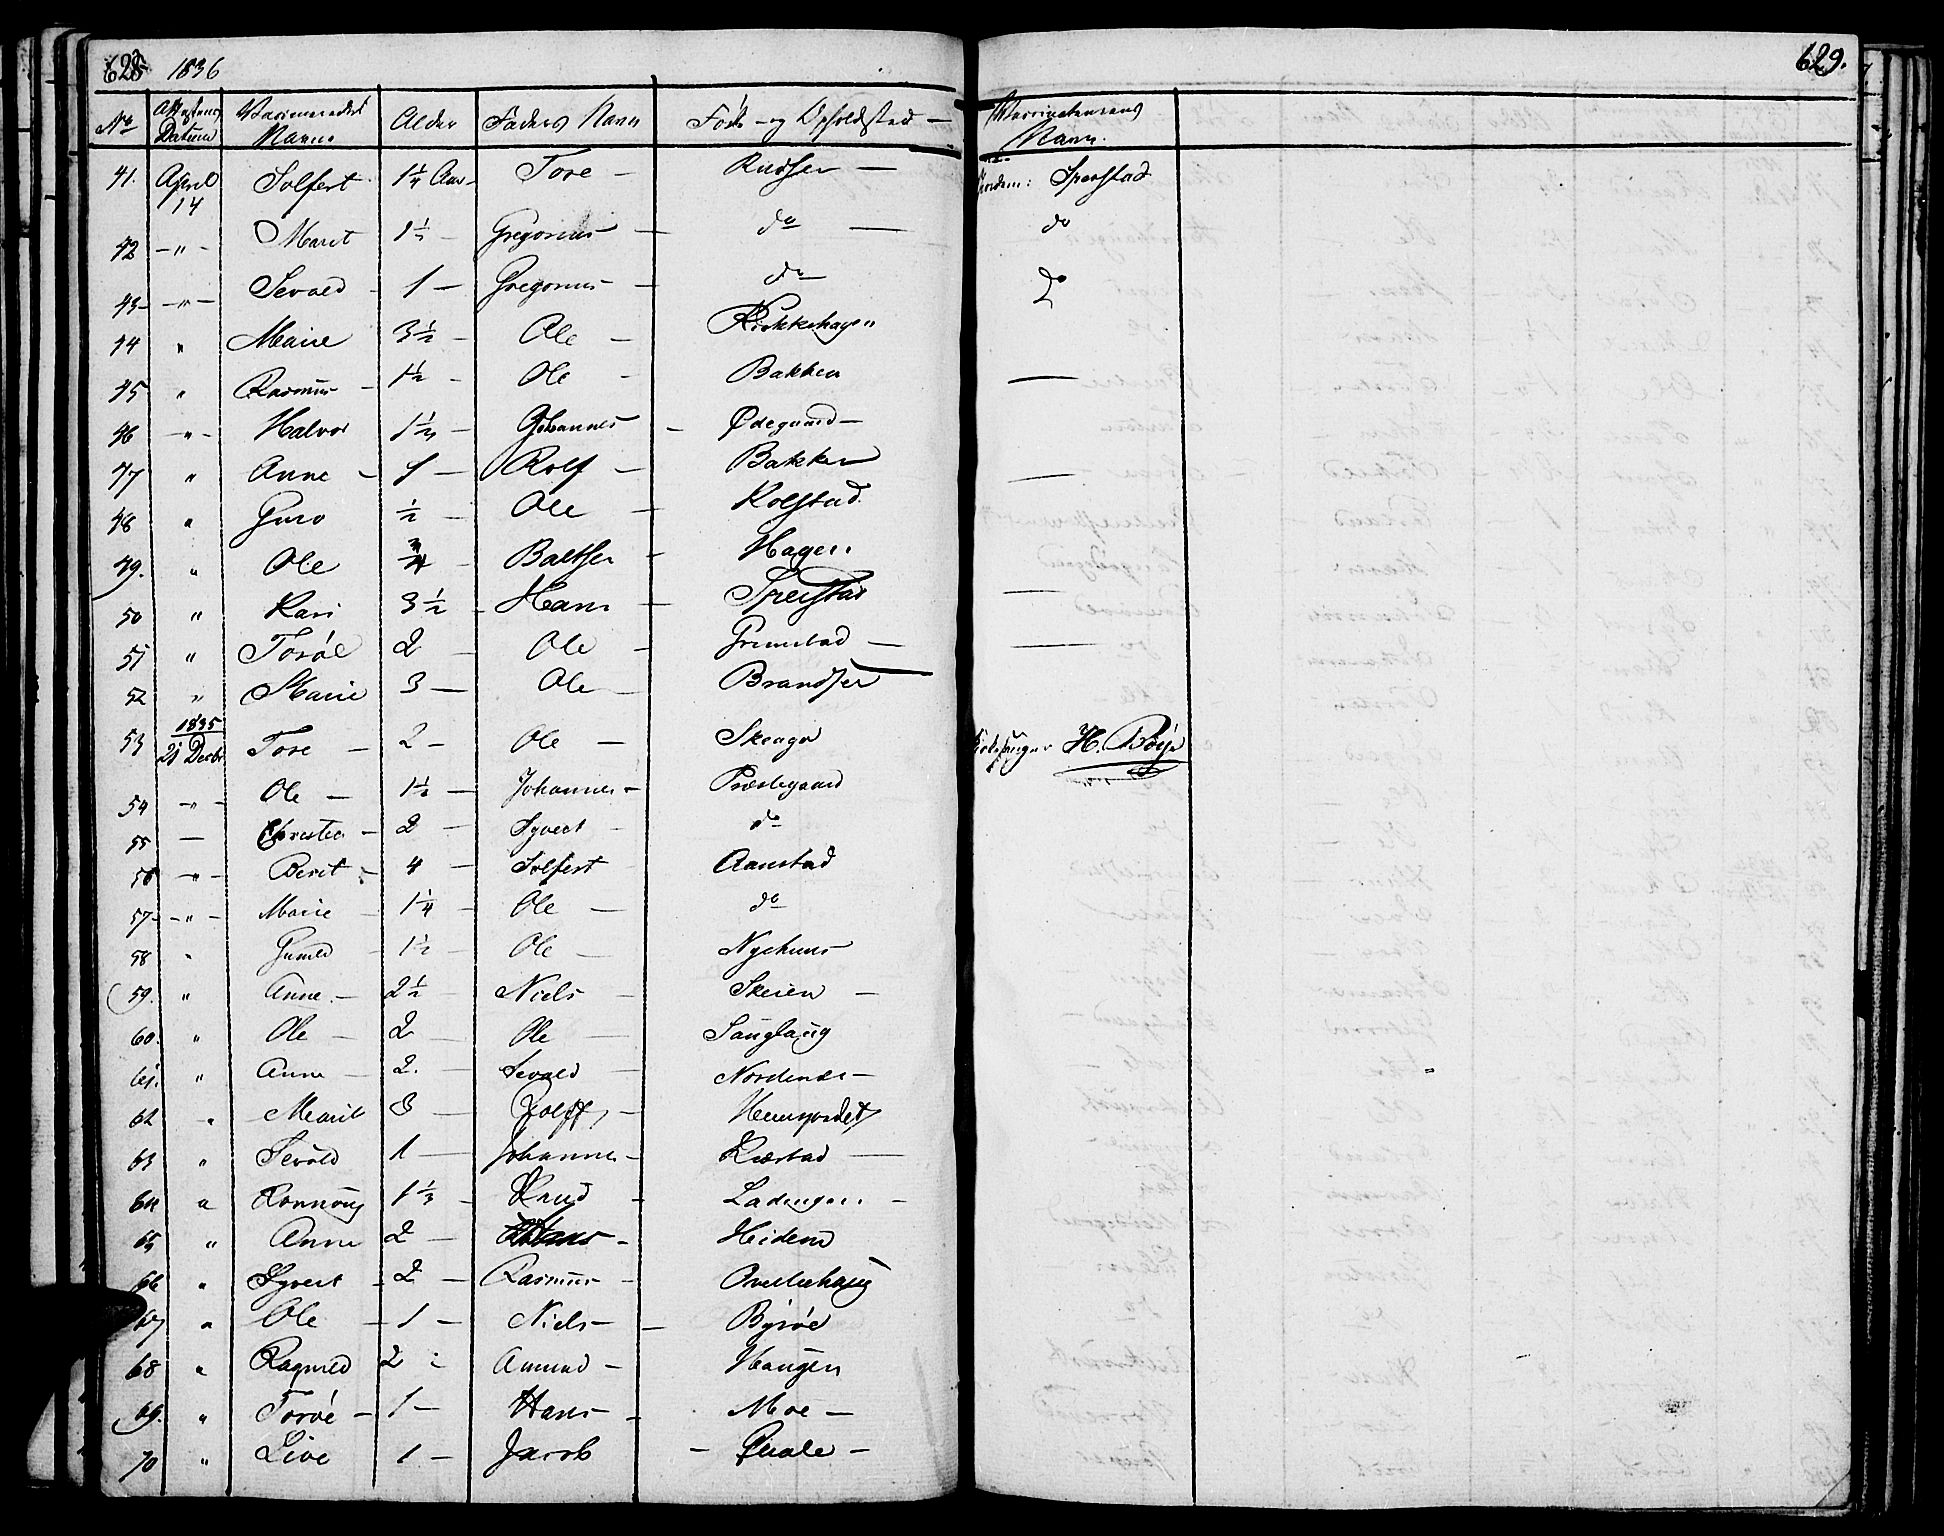 628 1836
629.
No Attestens Datum Vaccineredes Navne Alder Faders Navn Føde- og Opholdsted - Vaccinateurens Navn.
41. April 14 Solfert 1¼ Aar - Tore - Rudser - Sperstad
42 -"- Marit 1½ - Gregorius - do - do
43 -"- Sevald - 1 - Gregorius - do - do
44 " Marie 3½ - Ole - Kirkkehagen
45 " Rasmus - 1½ - Ole - Bakken -
46 -"- Halvor 1½ - Johannes - Ødegaard -
47 " Anne - 1 - Rolf - Bakken -
48 " Guro ½ - Ole - Kolstad
49. " Ole ¾ - Baltser - Hagen
50 " Kari 3½ - Hans - Sperstad -
51 " Torøe 2 - Ole - Grimstad -
52 " Marie 3 - Ole - Brandser
53 1835 21 Decbr Tore - 2 - Ole - Skeage Kirkesanger H. Böye
54 -"- Ole - 1½ - Johannes - Præstegaard
55 - Christen - 2 - Syvert - do
56 -"- Berit - 4 - Solfert Aanstad
57 -"- Marie - 1¼ - Ole - do
58 " Gunild - 1½ - Ole - Nyehuus
59. " Anne - 2½ - Niels - Skeien -
60. " Ole - 2 - Ole - Sanglaug
61. " Anne - 2. - Sevald - Nordenæs -
62 " Marit 3 - Rolff -
63 " Sevald 1 - Johannes - Ræstad -
64 " Rønnoug 1⅓ - Knud - Ladengen -
65 " Anne 2 - Hans - Heidene
66 " Syvert - 2 - Rasmus - Øverliehaug
67 " Ole - 1 - Niels - Byrøe
68 " Ragnild 2 - Amund - Haugen
69. " Torøe - 1 - Hans - Moe -
70 " Live 1 - Jacob - Quale -